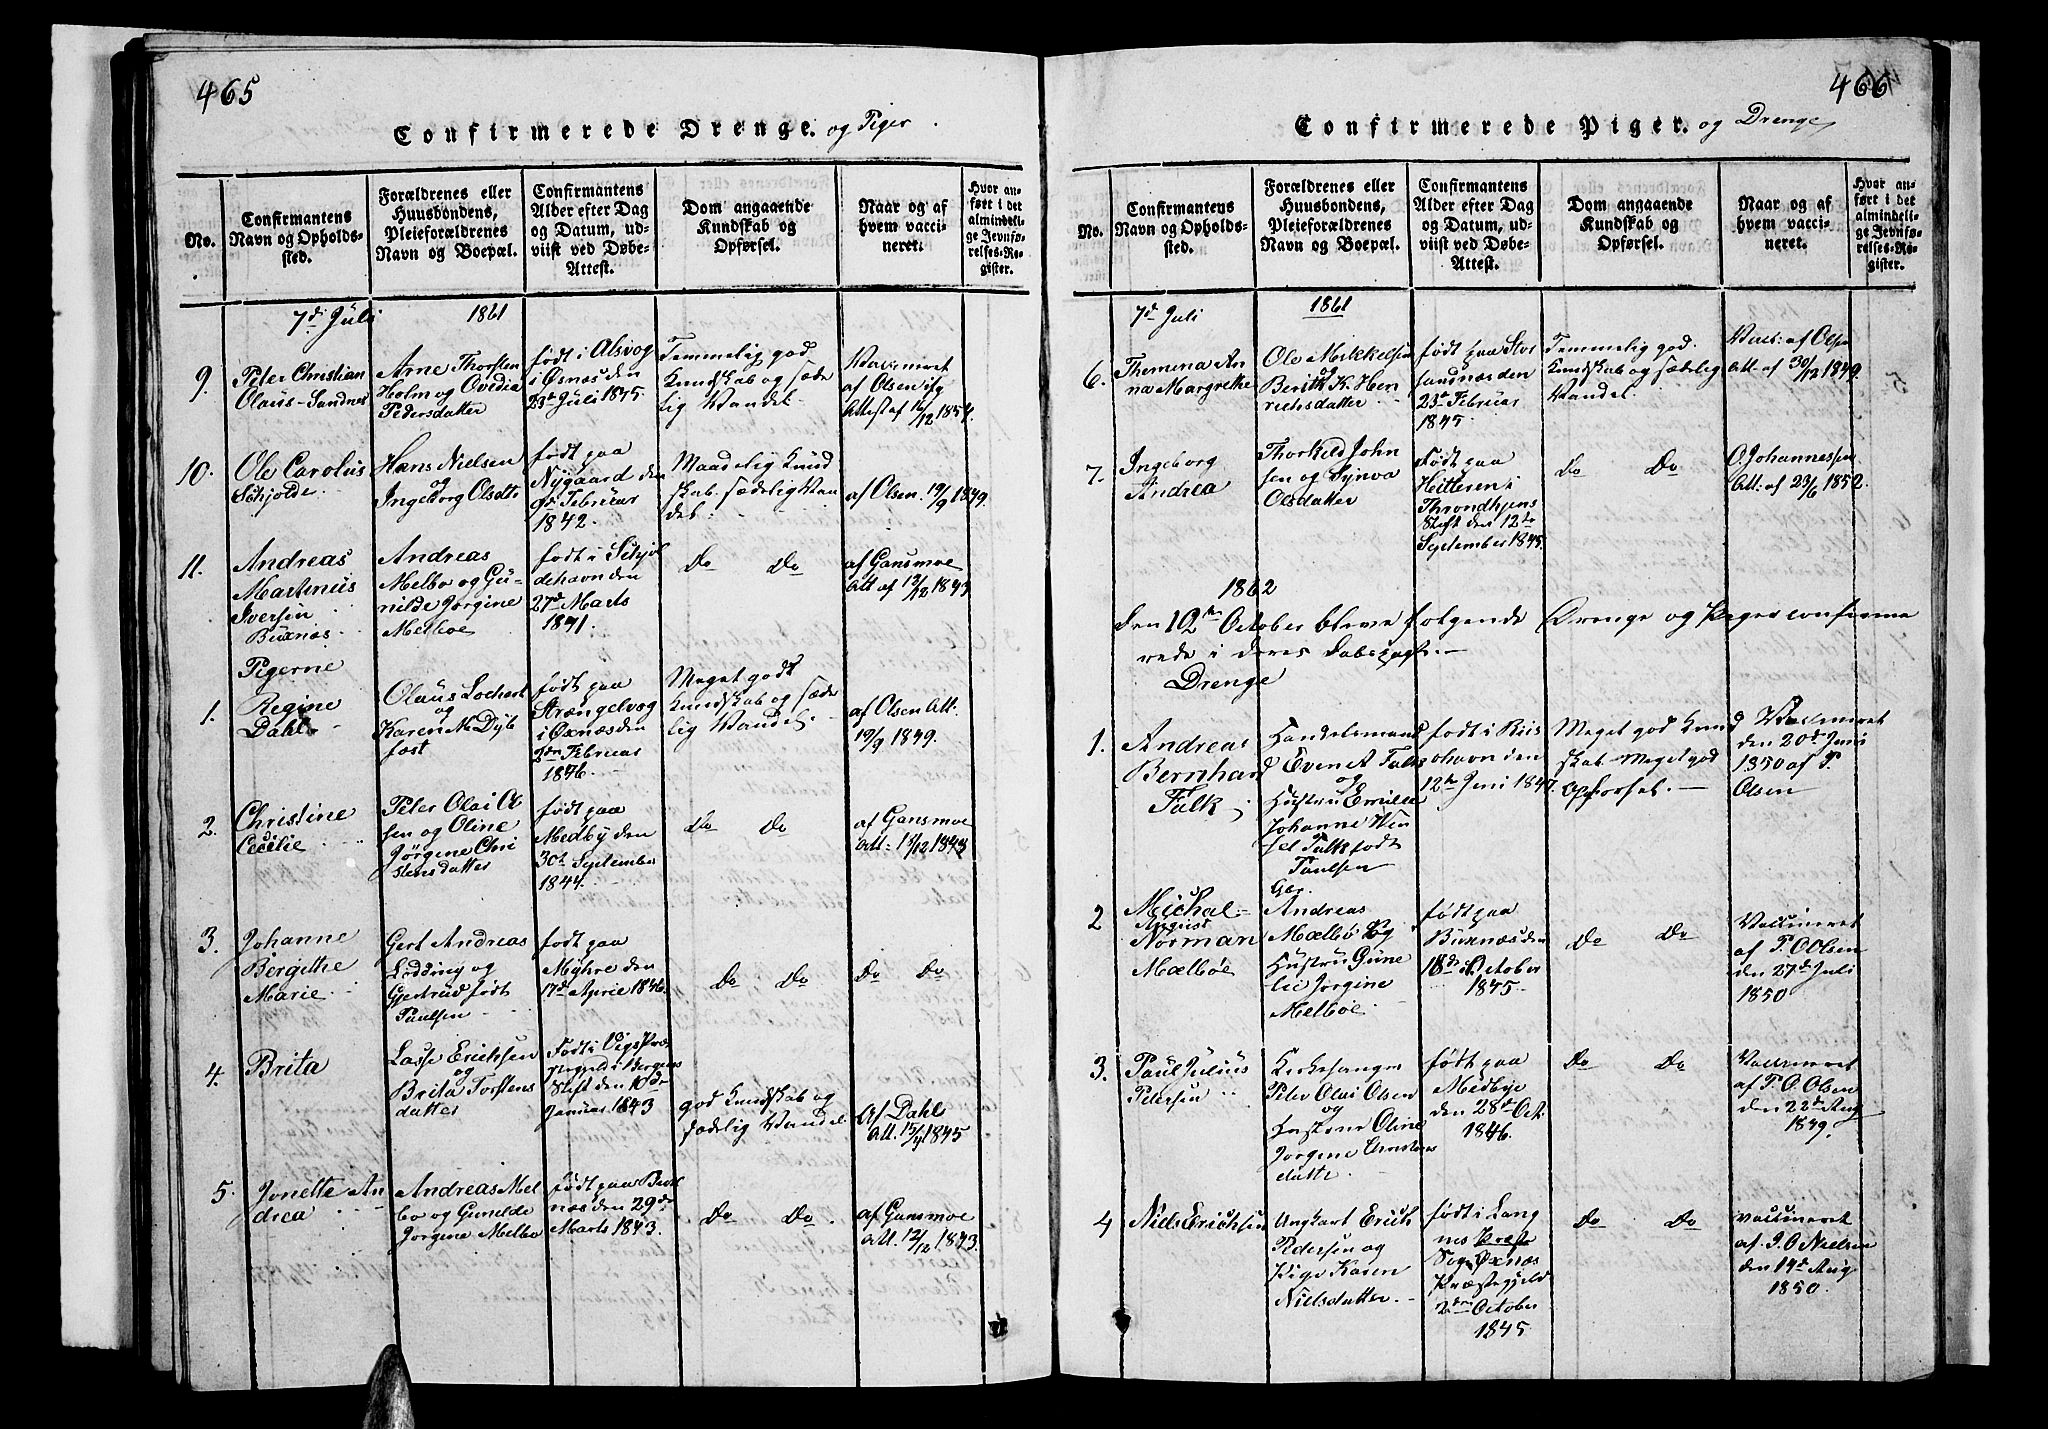 465
Confirmerede Drenge. og Piger.
No.
Confirmantens
Navn og Opholds-
sted.
Forældrenes eller
Huusbondens,
Pleieforældrenes
Navn og Boepæl.
Confirmantens
Alder efter Dag
og Datum, ud-
viist ved Døbe-
Attest.
Dom angaaende
Kundskab og
Opførsel.
Naar og af
hvem vacci-
neret.
Hvor an-
ført i det
almindeli-
ge Jevnfø-
relses-Re-
gister.
7de Juli 1861
9.
Peter Christian
Olaus Sandnes
Arne Thorsten
Holm og Ovedia
Pedersdatter
født i Alsvog
i Øxnæs den
23de Juli 1845
Temmelig god
Kundskab og sæde
lig Vandel.
Vaccineret
af Olsen
Attest af 16/12 1854.
10.
Ole Carolus
Schjolde
Hans Nielsen
og
Ingeborg Olsdtr
født paa
Nygaard den
Februar
1842.
Maadelig Kund
skab. sædelig Van
del.
af Olsen 19/9 1849.
11.
Andreas
Martinus
Iversen
Buxnæs
Andreas
Melbo og Gu-
nilde Jorgine
Melboe
født i Schjol
dehavn den
27de Marts
1841.
Do Do
af Gansmoe
Att af 12/12 1843
Pigerne
1.
Regine
Dahl
Olaus Lochert
og
Karen M Dyb
fest
født paa
Strængelvog
i Øxnæs den
2den Februar
1846.
Meget godt
Kundskab og sæde
lig Vandel.
af Olsen Att.
19/9 1849.
2.
Christine
Cecelie
Peter Olai Ol
sen og Oline
Jørgine Chri
stensdatter
født paa
Medby den
30te September
1844.
Do Do
af Gansmoe
Att. 13/12 1843
3.
Johanne
Bergithe
Marie
Gert Andreas
Lødding og
Gjertrud født
Paulsen
født paa
Myhre den
17de April 1846.
Do Do
Do Do
4.
Brita
Lasse Erichsen
og
Brita Torstens
datter
Født i Vigs Præ
stegjeld i Bergens
Stift den 10de
Januar 1843
god Kundskab og
sædelig Vandel
Af Dahl
Att. 15/4 1845
5.
Jonette An
drea
Andreas Mel
bo og Gunilde
Jorgine Melbo
født paa Bux
næs den 29de
Marts 1843.
Do Do.
af Gansmoe
Att. 12/12 1843.
466
Confirmerede Piger. og Drenge
No.
Confirmantens
Navn og Opholds-
sted.
Forældrenes eller
Huusbondens,
Pleieforældrenes
Navn og Boepæl.
Confirmantens
Alder efter Dag
og Datum, ud-
viist ved Døbe-
Attest.
Dom angaaende
Kundskab og
Opførsel.
Naar og af
hvem vacci-
neret.
Hvor an-
ført i det
almindeli-
ge Jevnfø-
relses-Re-
gister.
7de Juli 1861
6.
Themina An
na Margrethe
Ole Mikkelsen
og
Berith K. Hen
richsdatter
født paa Stor
sandnæs den
23de Februar
1845
Temmelig god.
Kundskab og sædelig
Vandel.
Vacc: af Olsen
Att. af 30/12 1849.
7.
Ingeborg
Andrea
Thorkild John
sen og Synva
Olsdatter
Født paa
Hitteren i
Throndhjems
Stift den 12te
September 1845.
Do Do
O. Johannessen
Att: af 23/6 1852.
1862
Den 12te October bleve følgende Drenge og Piger confirme
rede i deres Daabspagt.
Drenge
1.
Andreas
Bernhard
Falk
Handelsmand
Even A Falk
og
Hustru Emilie
Johanne Wen
sel Falk født
Paulsen
født i Riis
ohavn den
12te Juni 1847.
Meget god Kund
skab. Meget god
Opførsel.
Vaccineret
den 20de Juni
1850 af P.
Olsen
2
Michal
August
Norman
Mælbøe
Gbr.
Andreas
Mælbø og
Hustru Gune
lie Jorgine
Melbøe
født paa
Buxnæs den
18de October
1845
Do Do
Vaccineret
af P. O Olsen
den 27de Juli
1850
3.
Paul Julius
Petersen
Kirkesanger
Peter Olai Olsen
og
Hustrue Oline
Jorgine Christens
datter
født paa
Medbye
den 28de Oct.
1846.
Do Do
Vaccineret
af P. O. Olsen
den 22de Aug
1849.
4
Niels Erichsen
Ungkarl Erich
Pedersen og
Pige Karen
Nielsdatter
født i Lang
nes Præste
Sogn Øxnæs
Præstegjeld
2den October
1845
Do Do
Vaccineret
af J. O Nielsen
den 14de Aug
1850.